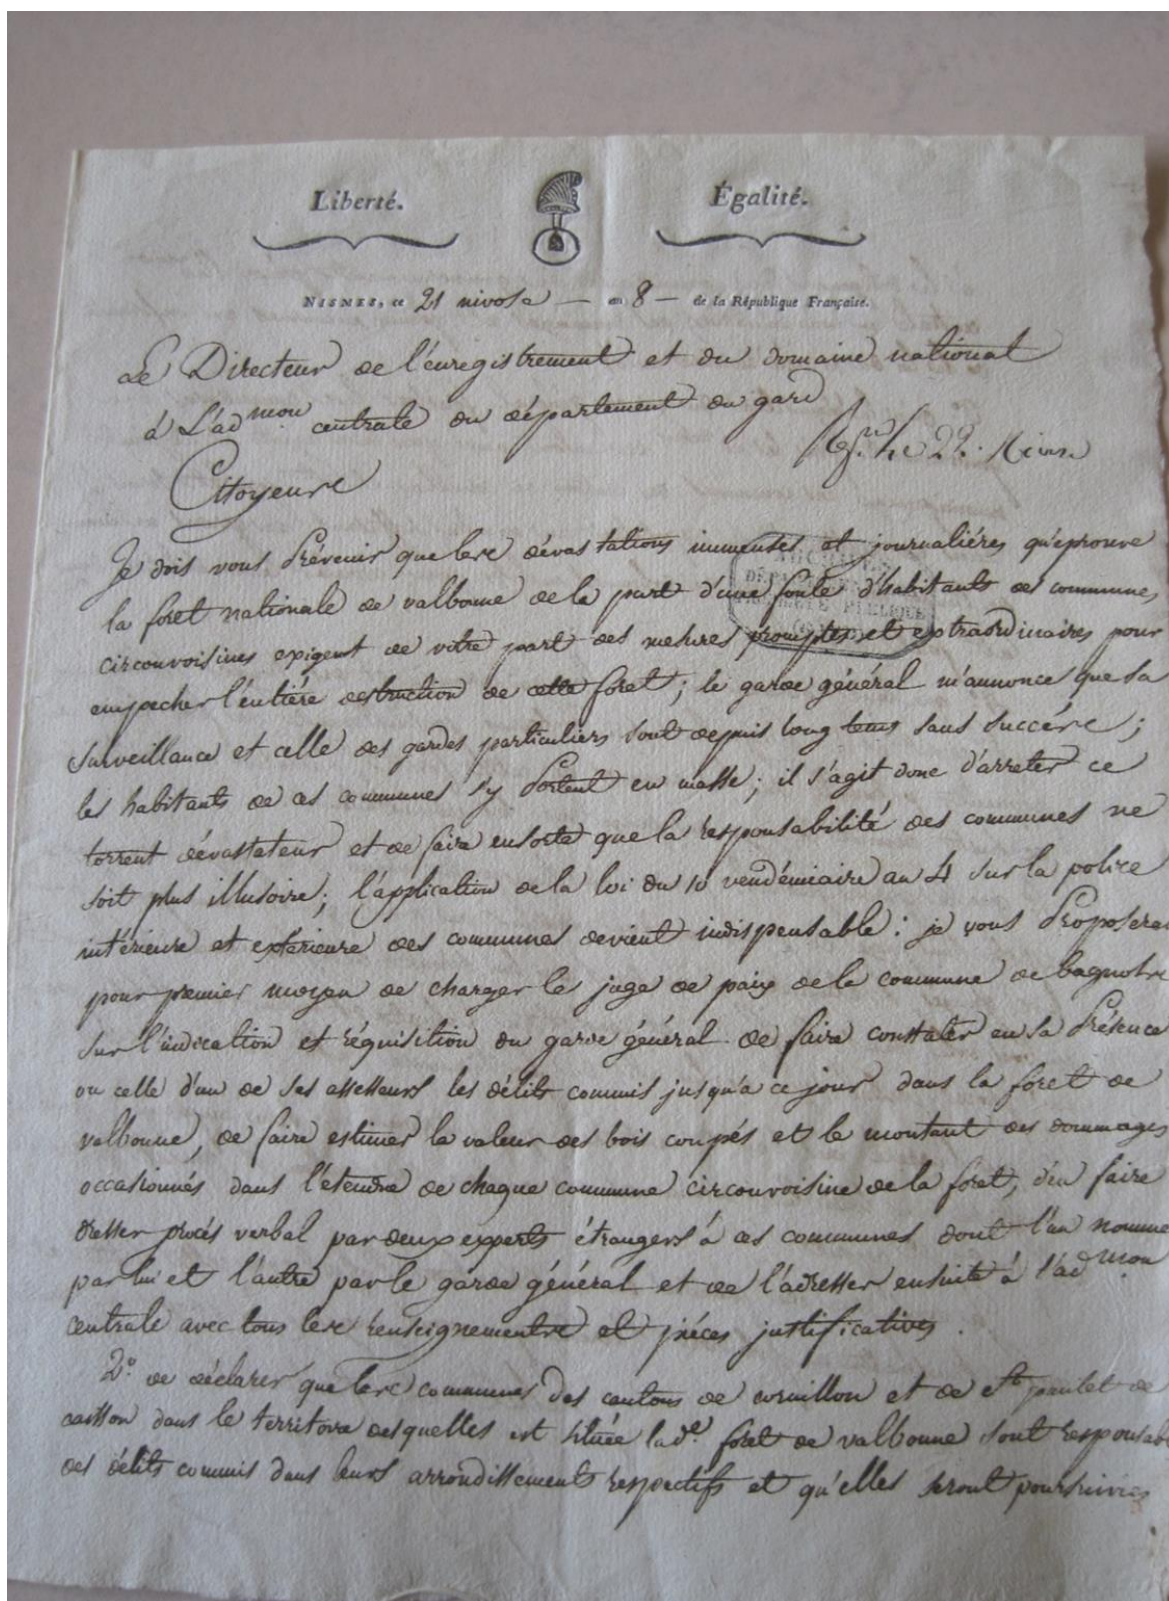 Liberté. Égalité.
NISMES, ce 21 nivose — an 8 — de la République Française.
Le Directeur de l'enregistrement et du domaine national
à L'ad.mon centrale du département du gard
22. Nivose
Citoyens
Je dois vous Prévenir que les dévastations immenses et journaliéres qu'éprouve
la foret nationale de valbonne de la part d'une foule d'habitants des communes
circonvoisines exigent de votre part des mesures promptes et extraordinaires pour
empecher l'entiére destruction de cette foret; le garde général m'annonce que sa
surveillance et celle des gardes particuliers sont depuis long tems sans succès;
les habitants de ces communes s'y Portent en masse; il s'agit donc d'arreter ce
torrent dévastateur et de faire ensorte que la responsabilité des communes ne
soit plus illusoire; l'application de la loi du 10 vendémiaire an 4 sur la police
intérieure et extérieure des communes devient indispensable: je vous Proposerai
pour premier moyen de charger le juge de paix de la commune de bagnols
sur l'indication et réquisition du garde général de faire constater en sa Présence
ou celle d'un de ses assesseurs les délits commis jusqu'a ce jour dans la foret de
valbonne, de faire estimer la valeur des bois coupés et le montant des dommages
occasionnés dans l'étendue de chaque commune circonvoisine de la foret, d'en faire
dresser procés verbal par deux experts étrangers à ces communes dont l'un nommé
par lui et l'autre par le garde général et de l'adresser ensuite à l'ad.mon
centrale avec tous les renseignements et piéces justificatives.
2.° de déclarer que les communes des cantons de cornillon et de St paulet de
caisson dans le territoire desquelles est située lad.e foret de valbonne sont responsab
des délits commis dans leurs arrondissements respectifs et qu'elles seront poursuivies